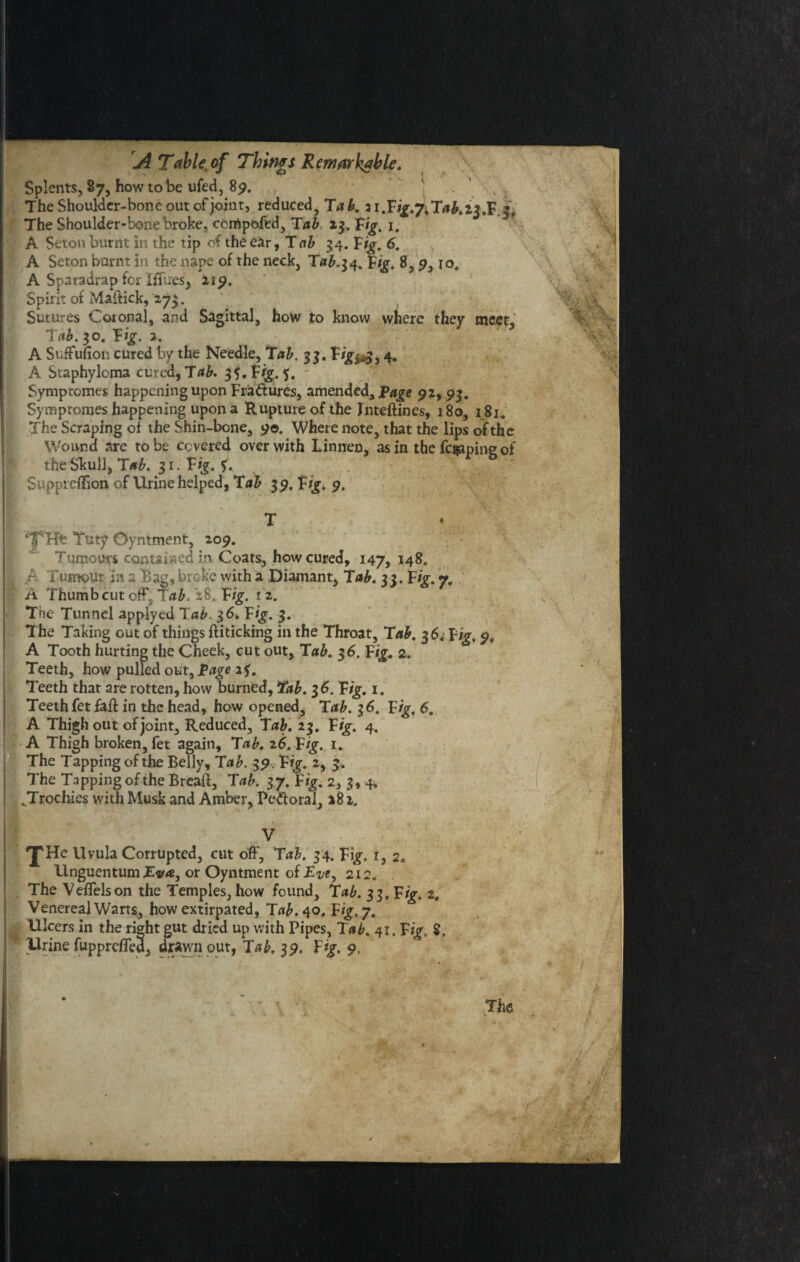 A Table of Things Remarkable.
Splents, 87, how to be uſed, 89.
The Shoulder-bone out of joint, reduced, Tab. 21. Fig. 7. Tab. 23. F. 3.
The Shoulder-bone broke, compoſed, Tab. 23. Fig. 1.
A Seton burnt in the tip of the ear, Tab 34. Fig. 6.
A Seton burnt in the nape of the neck, Tab. 34. Fig. 8, 9, 10.
A Sparadrap for Iſſues, 219.
Spirit of Maſtick, 273.
Sutures Coronal, and Sagittal, how to know where they meet,
Tab. 30. Fig. 2.
A Suffuſion cured by the Needle, Tab. 33. Fig. 3, 4.
A Staphyloma cured, Tab. 35. Fig. 5.
Symptomes happening upon Fractures, amended, Page 92, 93.
Symptomes happening upon a Rupture of the Inteſtines, 180, 181.
The Scraping of the Shin-bone, 90. Where note, that the lips of the
Wound are to be covered over with Linnen, as in the ſcraping of
the Skull, Tab. 31. Fig. 5.
Suppreſſion of Urine helped, Tab 39. Fig. 9.
T
THe Tuty Oyntment, 209.
Tumours contained in Coats, how cured, 147, 148.
A Tumour in a Bag, broke with a Diamant, Tab. 33. Fig. 7.
A Thumb cut off, Tab. 28. Fig. 12.
The Tunnel applyed Tab. 36. Fig. 3.
The Taking out of things ſtiticking in the Throat, Tab. 36. Fig. 9.
A Tooth hurting the Cheek, cut out, Tab. 36. Fig. 2.
Teeth, how pulled out, Page 25.
Teeth that are rotten, how burned, Tab. 36. Fig. 1.
Teeth ſet faſt in the head, how opened, Tab. 36. Fig. 6.
A Thigh out of joint, Reduced, Tab. 23. Fig. 4.
A Thigh broken, ſet again, Tab. 26. Fig. 1.
The Tapping of the Belly, Tab. 39. Fig. 2, 3.
The Tapping of the Breaſt, Tab. 37. Fig. 2, 3, 4.
Trochies with Musk and Amber, Pectoral, 282.
V
THe Uvula Corrupted, cut off, Tab. 34. Fig. 1, 2.
Unguentum Evæ, or Oyntment of Eve, 212.
The Veſſels on the Temples, how found, Tab. 33. Fig. 2.
Venereal Warts, how extirpated, Tab. 40. Fig. 7.
Ulcers in the right gut dried up with Pipes, Tab. 41. Fig. 8.
Urine ſuppreſſed, drawn out, Tab. 39. Fig. 9.
The